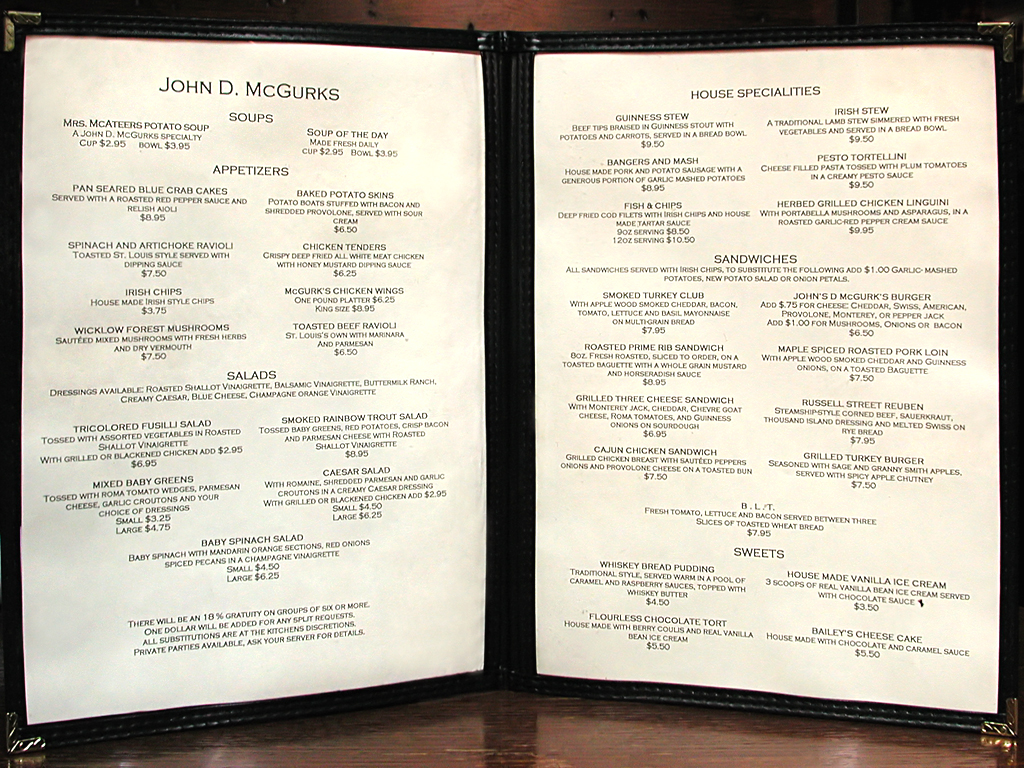 JOHN D. MCGURKS
SOUPS
MRS. MCATEERS POTATO SOUP
A JOHN D. MCGURKS SPECIALTY
CUP $2.95 BOWL $3.95
SOUP OF THE DAY
MADE FRESH DAILY
CUP $2.95 BOWL $3.95
APPETIZERS
PAN SEARED BLUE CRAB CAKES
SERVED WITH A ROASTED RED PEPPER SAUCE AND
RELISH AIOLI
$8.95
BAKED POTATO SKINS
POTATO BOATS STUFFED WITH BACON AND
SHREDDED PROVOLONE, SERVED WITH SOUR
CREAM
$6.50
SPINACH AND ARTICHOKE RAVIOLI
TOASTED ST. LOUIS STYLE SERVED WITH
DIPPING SAUCE
$7.50
CHICKEN TENDERS
CRISPY DEEP FRIED ALL WHITE MEAT CHICKEN
WITH HONEY MUSTARD DIPPING SAUCE
$6.25
IRISH CHIPS
HOUSE MADE IRISH STYLE CHIPS
$3.75
MCGURK'S CHICKEN WINGS
ONE POUND PLATTER $6.25
KING SIZE $8.95
WICKLOW FOREST MUSHROOMS
SAUTÉED MIXED MUSHROOMS WITH FRESH HERBS
AND DRY VERMOUTH
$7.50
TOASTED BEEF RAVIOLI
ST. LOUIS'S OWN WITH MARINARA
AND PARMESAN
$6.50
SALADS
DRESSINGS AVAILABLE: ROASTED SHALLOT VINAIGRETTE, BALSAMIC VINAIGRETTE, BUTTERMILK RANCH,
CREAMY CAESAR, BLUE CHEESE, CHAMPAGNE ORANGE VINAIGRETTE
TRICOLORED FUSILLI SALAD
TOSSED WITH ASSORTED VEGETABLES IN ROASTED
SHALLOT VINAIGRETTE
WITH GRILLED OR BLACKENED CHICKEN ADD $2.95
$6.95
SMOKED RAINBOW TROUT SALAD
TOSSED BABY GREENS, RED POTATOES, CRISP BACON
AND PARMESAN CHEESE WITH ROASTED
SHALLOT VINAIGRETTE
$8.95
MIXED BABY GREENS
TOSSED WITH ROMA TOMATO WEDGES, PARMESAN
CHEESE, GARLIC CROUTONS AND YOUR
CHOICE OF DRESSINGS
SMALL $3.25
LARGE $4.75
CAESAR SALAD
WITH ROMAINE, SHREDDED PARMESAN AND GARLIC
CROUTONS IN A CREAMY CAESAR DRESSING
WITH GRILLED OR BLACKENED CHICKEN ADD $2.95
SMALL $4.50
LARGE $6.25
BABY SPINACH SALAD
BABY SPINACH WITH MANDARIN ORANGE SECTIONS, RED ONIONS
SPICED PECANS IN A CHAMPAGNE VINAIGRETTE
SMALL $4.50
LARGE $6.25
THERE WILL BE AN 18 % GRATUITY ON GROUPS OF SIX OR MORE.
ONE DOLLAR WILL BE ADDED FOR ANY SPLIT REQUESTS.
ALL SUBSTITUTIONS ARE AT THE KITCHENS DISCRETIONS.
PRIVATE PARTIES AVAILABLE, ASK YOUR SERVER FOR DETAILS.
HOUSE SPECIALITIES
GUINNESS STEW
BEEF TIPS BRAISED IN GUINNESS STOUT WITH
POTATOES AND CARROTS, SERVED IN A BREAD BOWL
$9.50
IRISH STEW
A TRADITIONAL LAMB STEW SIMMERED WITH FRESH
VEGETABLES AND SERVED IN A BREAD BOWL
$9.50
BANGERS AND MASH
HOUSE MADE PORK AND POTATO SAUSAGE WITH A
GENEROUS PORTION OF GARLIC MASHED POTATOES
$8.95
PESTO TORTELLINI
CHEESE FILLED PASTA TOSSED WITH PLUM TOMATOES
IN A CREAMY PESTO SAUCE
$9.50
FISH & CHIPS
DEEP FRIED COD FILETS WITH IRISH CHIPS AND HOUSE
MADE TARTAR SAUCE
9OZ SERVING $8.50
12OZ SERVING $10.50
HERBED GRILLED CHICKEN LINGUINI
WITH PORTABELLA MUSHROOMS AND ASPARAGUS, IN A
ROASTED GARLIC-RED PEPPER CREAM SAUCE
$9.95
SANDWICHES
ALL SANDWICHES SERVED WITH IRISH CHIPS, TO SUBSTITUTE THE FOLLOWING ADD $1.00 GARLIC- MASHED
POTATOES, NEW POTATO SALAD OR ONION PETALS.
SMOKED TURKEY CLUB
WITH APPLE WOOD SMOKED CHEDDAR, BACON,
TOMATO, LETTUCE AND BASIL MAYONNAISE
ON MULTI-GRAIN BREAD
$7.95
JOHN'S D MCGURK'S BURGER
ADD $.75 FOR CHEESE; CHEDDAR, SWISS, AMERICAN,
PROVOLONE, MONTEREY, OR PEPPER JACK
ADD $1.00 FOR MUSHROOMS, ONIONS OR BACON
$6.50
ROASTED PRIME RIB SANDWICH
8OZ. FRESH ROASTED, SLICED TO ORDER, ON A
TOASTED BAGUETTE WITH A WHOLE GRAIN MUSTARD
AND HORSERADISH SAUCE
$8.95
MAPLE SPICED ROASTED PORK LOIN
WITH APPLE WOOD SMOKED CHEDDAR AND GUINNESS
ONIONS, ON A TOASTED BAGUETTE
$7.50
GRILLED THREE CHEESE SANDWICH
WITH MONTEREY JACK, CHEDDAR, CHEVRE GOAT
CHEESE, ROMA TOMATOES, AND GUINNESS
ONIONS ON SOURDOUGH
$6.95
RUSSELL STREET REUBEN
STEAMSHIP-STYLE CORNED BEEF, SAUERKRAUT,
THOUSAND ISLAND DRESSING AND MELTED SWISS ON
RYE BREAD
$7.95
CAJUN CHICKEN SANDWICH
GRILLED CHICKEN BREAST WITH SAUTÉED PEPPERS
ONIONS AND PROVOLONE CHEESE ON A TOASTED BUN
$7.50
GRILLED TURKEY BURGER
SEASONED WITH SAGE AND GRANNY SMITH APPLES,
SERVED WITH SPICY APPLE CHUTNEY
$7.50
B . L . T.
FRESH TOMATO, LETTUCE AND BACON SERVED BETWEEN THREE
SLICES OF TOASTED WHEAT BREAD
$7.95
SWEETS
WHISKEY BREAD PUDDING
TRADITIONAL STYLE, SERVED WARM IN A POOL OF
CARAMEL AND RASPBERRY SAUCES, TOPPED WITH
WHISKEY BUTTER
$4.50
HOUSE MADE VANILLA ICE CREAM
3 SCOOPS OF REAL VANILLA BEAN ICE CREAM SERVED
WITH CHOCOLATE SAUCE
$3.50
FLOURLESS CHOCOLATE TORT
HOUSE MADE WITH BERRY COULIS AND REAL VANILLA
BEAN ICE CREAM
$5.50
BAILEY'S CHEESE CAKE
HOUSE MADE WITH CHOCOLATE AND CARAMEL SAUCE
$5.50